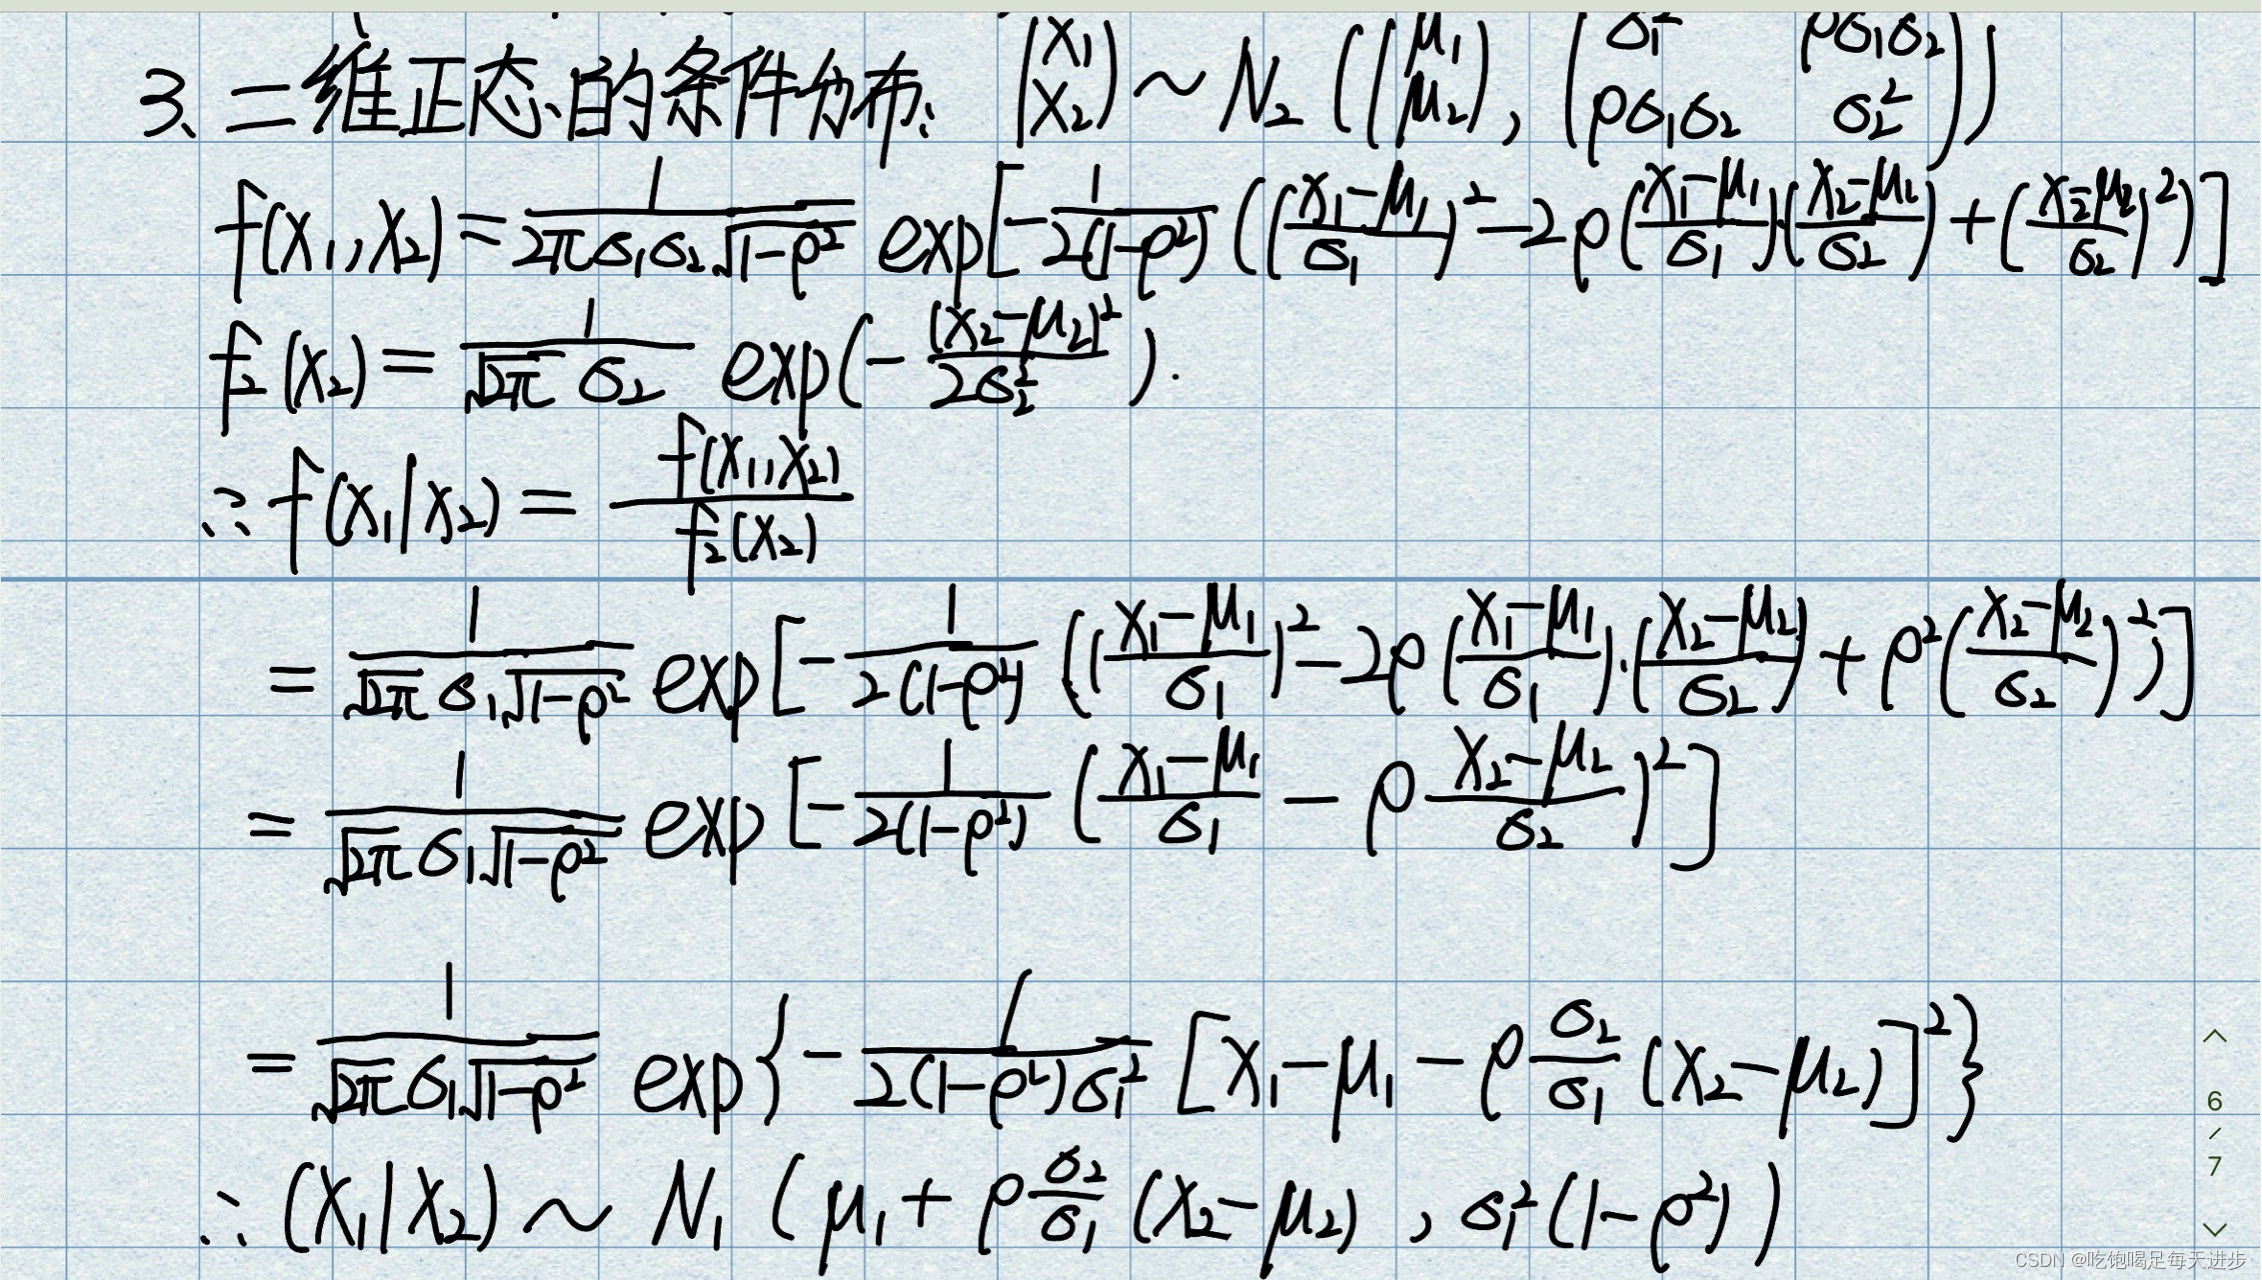 3、二维正态的条件分布: (X₁ X₂) ~ N₂ ((μ₁ μ₂), (σ₁² ρσ₁σ₂ ρσ₁σ₂ σ₂²))
f(x₁,x₂) = 1/(2πσ₁σ₂√(1-ρ²)) exp[-1/(2(1-ρ²)) (((x₁-μ₁)/σ₁)² - 2ρ((x₁-μ₁)/σ₁)·((x₂-μ₂)/σ₂) + ((x₂-μ₂)/σ₂)²)]
f₂(x₂) = 1/(√(2π) σ₂) exp(-(x₂-μ₂)²/(2σ₂²)).
∴ f(x₁|x₂) = f(x₁,x₂)/f₂(x₂)
= 1/(√(2π) σ₁√(1-ρ²)) exp[-1/(2(1-ρ²)) (((x₁-μ₁)/σ₁)² - 2ρ((x₁-μ₁)/σ₁)·((x₂-μ₂)/σ₂) + ρ²((x₂-μ₂)/σ₂)²)]
= 1/(√(2π) σ₁√(1-ρ²)) exp[-1/(2(1-ρ²)) ((x₁-μ₁)/σ₁ - ρ(x₂-μ₂)/σ₂)²]
= 1/(√(2π) σ₁√(1-ρ²)) exp{-1/(2(1-ρ²)σ₁²) [x₁-μ₁-ρ(σ₂/σ₁)(x₂-μ₂)]²}
∴ (X₁|X₂) ~ N₁ (μ₁+ρ(σ₂/σ₁)(x₂-μ₂), σ₁²(1-ρ²))
6/7
CSDN @吃饱喝足每天进步